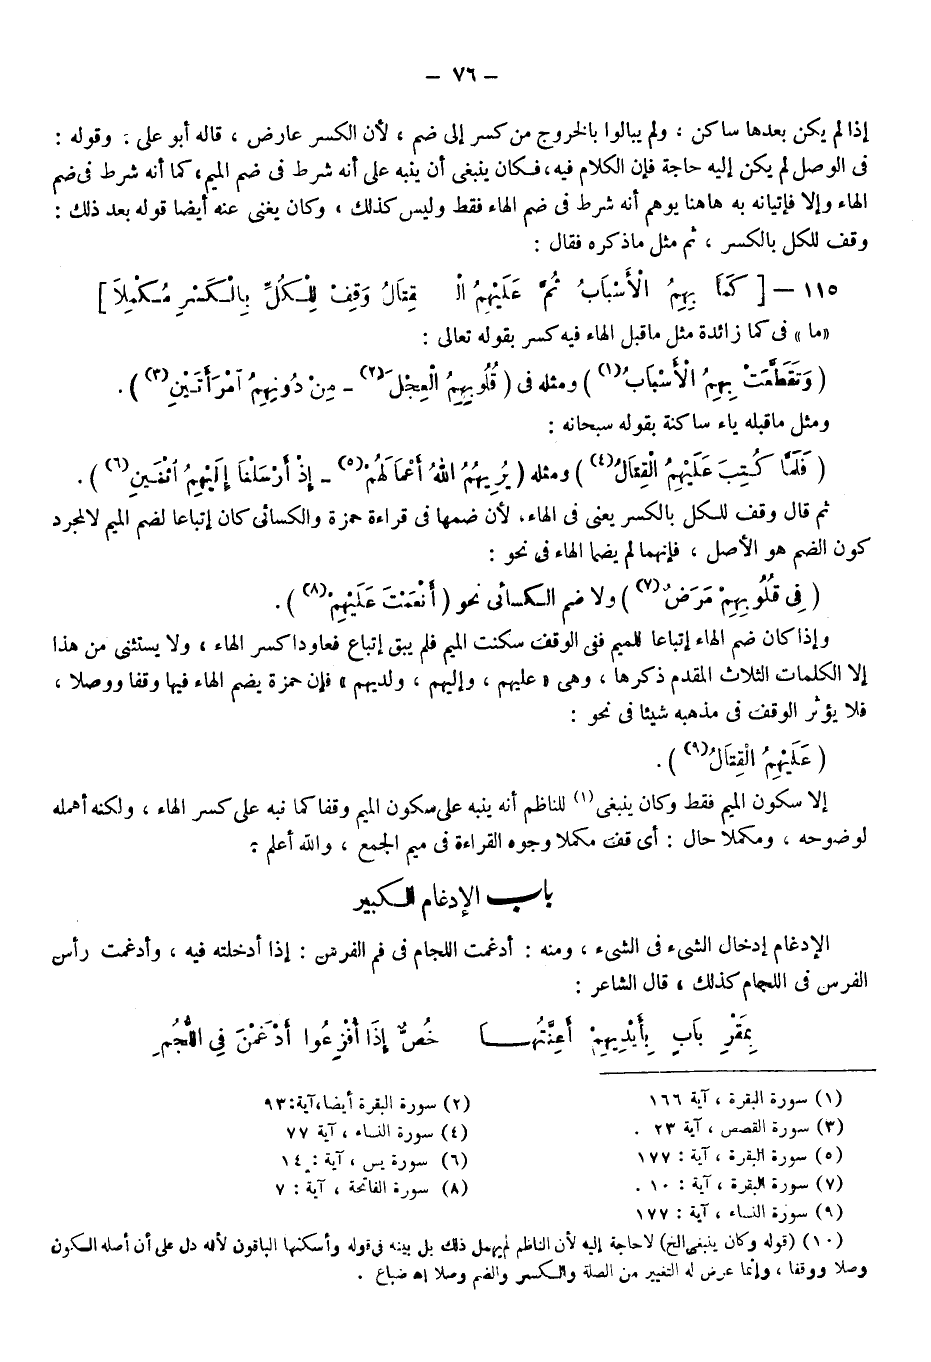 – ٧٦ –
إذا لم يكن بعدها ساكن ، ولم يبالوا بالخروج من كسر إلى ضم ، لأن الكسر عارض ، قاله أبو على . وقوله :
فى الوصل لم يكن إليه حاجة فإن الكلام فيه، فكان ينبغى أن ينبه على أنه شرط فى ضم الميم، كما أنه شرط فى ضم
الهاء وإلا فإتيانه به هاهنا يوهم أنه شرط فى ضم الهاء فقط وليس كذلك ، وكان يغنى عنه أيضا قوله بعد ذلك :
وقف للكل بالكسر ، ثم مثل ماذكره فقال :
١١٥ – [ كَمَا بِهِمُ الْأَسْبَابُ ثُمَّ عَلَيْهِمُ الْـ قِتَالُ وَقِفْ لِلْكُلِّ بِالْكَسْرِ مُكْمِلاَ ]
«ما» فى كما زائدة مثل ماقبل الهاء فيه كسر بقوله تعالى :
( وَتَقَطَّعَتْ بِهِمُ الْأَسْبَابُ(١) ) ومثله فى ( قُلُوبِهِمُ الْعِجْلَ(٢) – مِنْ دُونِهِمُ امْرَأَتَيْنِ(٣) ) .
ومثل ماقبله ياء ساكنة بقوله سبحانه :
( فَلَمَّا كُتِبَ عَلَيْهِمُ الْقِتَالُ(٤) ) ومثله ( يُرِيهُمُ اللهُ أَعْمَالَهُمْ(٥) – إِذْ أَرْسَلْنَا إِلَيْهِمُ اثْنَيْنِ(٦) ) .
ثم قال وقف للكل بالكسر يعنى فى الهاء، لأن ضمها فى قراءة حمزة والكسائى كان إتباعا لضم الميم لالمجرد
كون الضم هو الأصل ، فإنهما لم يضما الهاء فى نحو :
( فِى قُلُوبِهِمْ مَرَضٌ(٧) ) ولا ضم الكسائى نحو ( أَنْعَمْتَ عَلَيْهِمْ(٨) ) .
وإذا كان ضم الهاء إتباعا للميم ففى الوقف سكنت الميم فلم يبق إتباع فعاودا كسر الهاء ، ولا يستثنى من هذا
إلا الكلمات الثلاث المقدم ذكرها ، وهى «عليهم ، وإليهم ، ولديهم» فإن حمزة يضم الهاء فيها وقفا ووصلا ،
فلا يؤثر الوقف فى مذهبه شيئا فى نحو :
( عَلَيْهِمُ الْقِتَالُ(٩) ) .
إلا سكون الميم فقط وكان ينبغى(١) للناظم أنه ينبه على سكون الميم وقفا كما نبه على كسر الهاء ، ولكنه أهمله
لوضوحه ، ومكملا حال : أى قف مكملا وجوه القراءة فى ميم الجمع ، والله أعلم :
باب الإدغام الكبير
الإدغام إدخال الشىء فى الشىء ، ومنه : أدغمت اللجام فى فم الفرس : إذا أدخلته فيه ، وأدغمت رأس
الفرس فى اللجام كذلك ، قال الشاعر :
بِمَقْرِ بَابٍ بِأَيْدِيهِمْ أَعِنَّتُهَـــا خُصٌّ إِذَا أُفْزِعُوا أَدْغَمْنَ فِى اللُّجُمِ
(١) سورة البقرة ، آية ١٦٦
(٢) سورة البقرة أيضا،آية:٩٣
(٣) سورة القصص ، آية ٢٣ .
(٤) سورة النساء ، آية ٧٧
(٥) سورة البقرة ، آية : ١٧٧
(٦) سورة يس ، آية : ١٤
(٧) سورة البقرة ، آية : ١٠ .
(٨) سورة الفاتحة ، آية : ٧
(٩) سورة النساء ، آية : ١٧٧
(١٠) (قوله وكان ينبغى الخ) لاحاجة إليه لأن الناظم لم يهمل ذلك بل بينه فى قوله وأسكنها الباقون لأنه دل على أن أصله السكون
وصلا ووقفا ، وإنما عرض له التغيير من الصلة والكسر والضم وصلا اه ضباع .